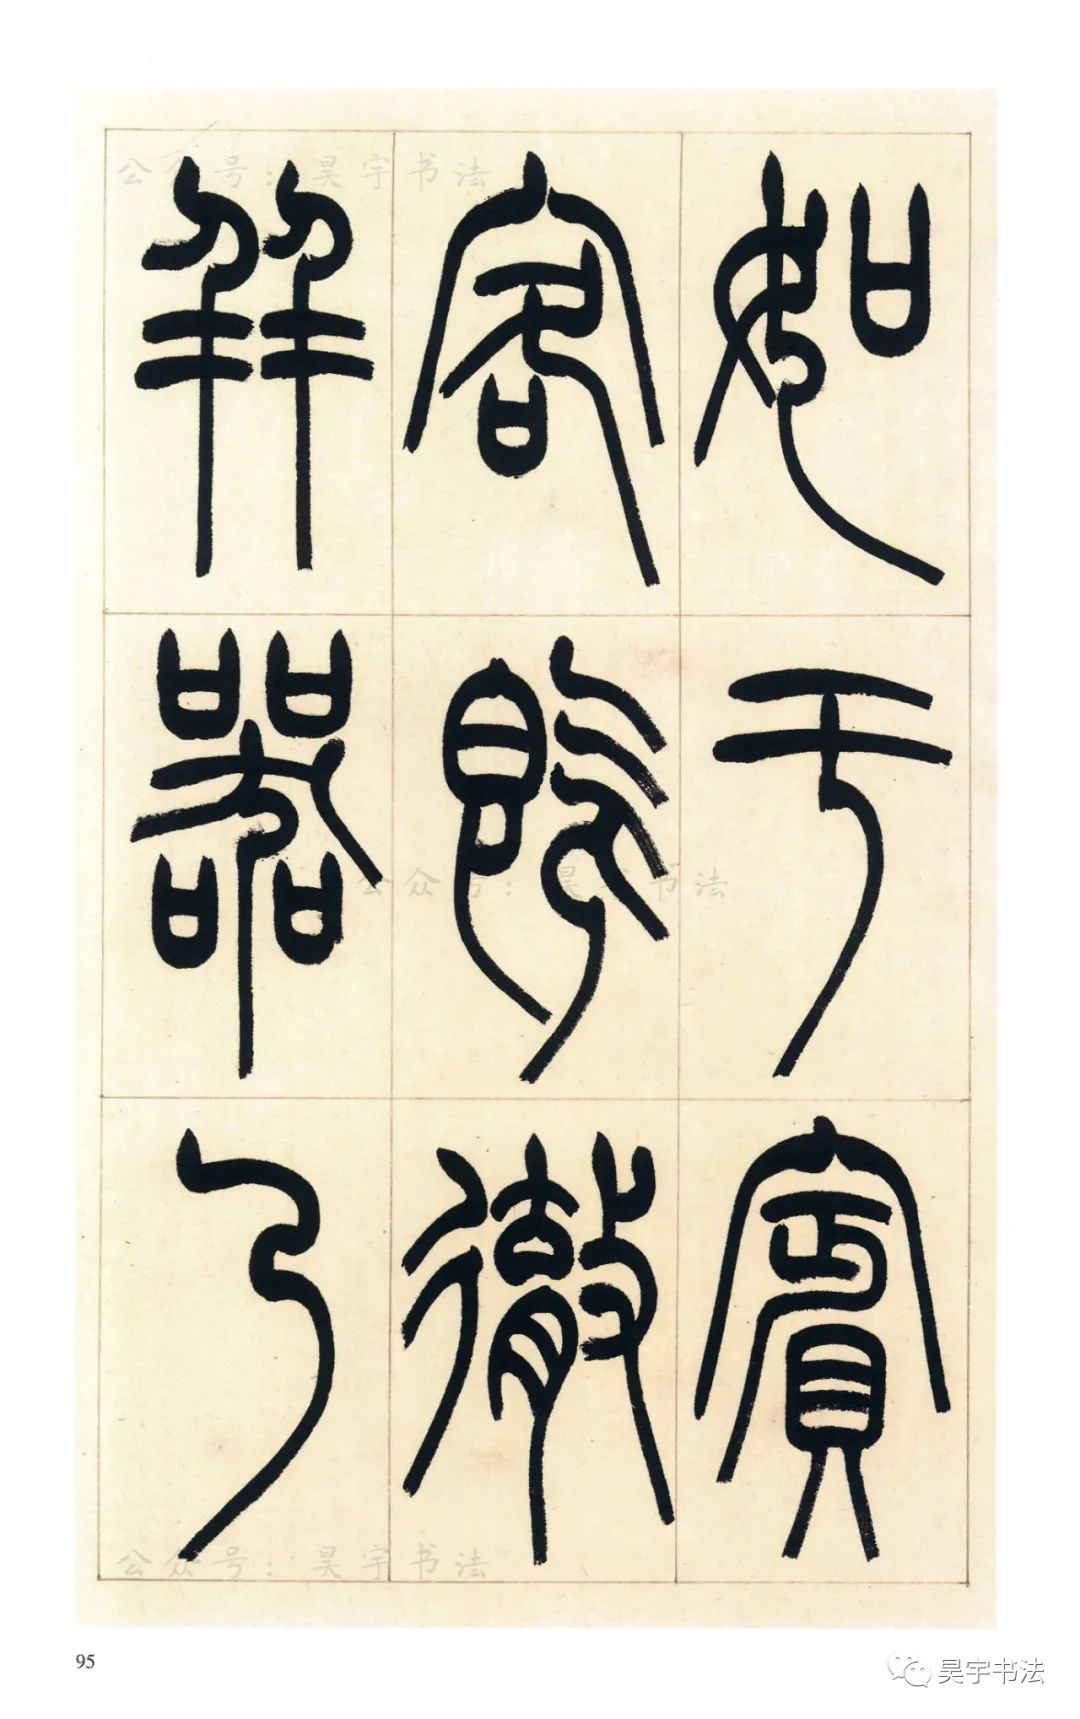 如于賓
客既徹
并器乃
公众号:昊宇书法
公众号:昊宇书法
公众号:昊宇书法
95
昊宇书法